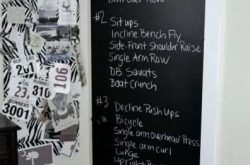 #2 Sit ups
Incline Bench Fly
Side-Front Shoulder Raise
Single Arm Row
DB Squats
Boat Crunch
#3 Decline Push Ups
Bicycle
Single arm overhead Press
Single arm curl
Lunge
Upright
106
9001
31